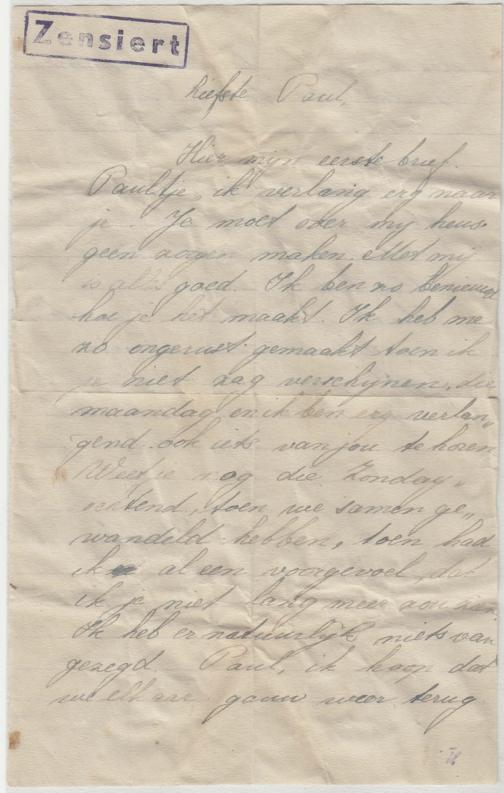 Zensiert
Liefste Paul,
Hier mijn eerste brief.
Paultje, ik verlang erg naar
je. Je moet over mij heus
geen zorgen maken. Met mij
is alles goed. Ik ben zo benieuwd
hoe je het maakt. Ik heb me
zo ongerust gemaakt toen ik
je niet zag verschijnen, die
maandag, en ik ben erg verlan„
gend ook iets van jou te horen
Weet je nog die Zondag„
ochtend, toen we samen ge„
wandeld hebben, toen had
ik al een voorgevoel, dat
ik je niet lang meer zou zien.
Ik heb er natuurlijk niets van
gezegd. Paul, ik hoop dat
we elkaar gauw weer terug